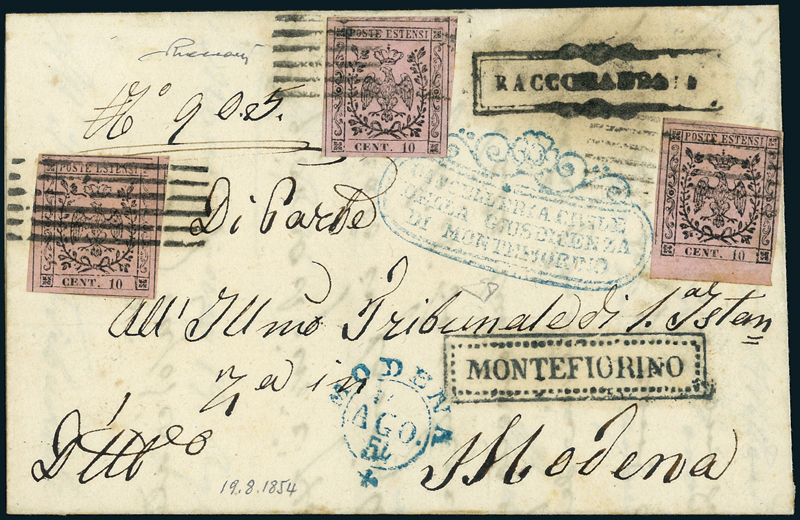 POSTE ESTENSI
CENT. 10
N° 905.
RACCOMANDATA
POSTE ESTENSI
CENT. 10
POSTE ESTENSI
CENT. 10
CANCELLERIA CIVILE
DELLA GIUSDICENZA
DI MONTEFIORINO
Di Parte
All' Illmo Tribunale di 1.a Istan
za in
MONTEFIORINO
MODENA
AGO.
Modena
19.8.1854